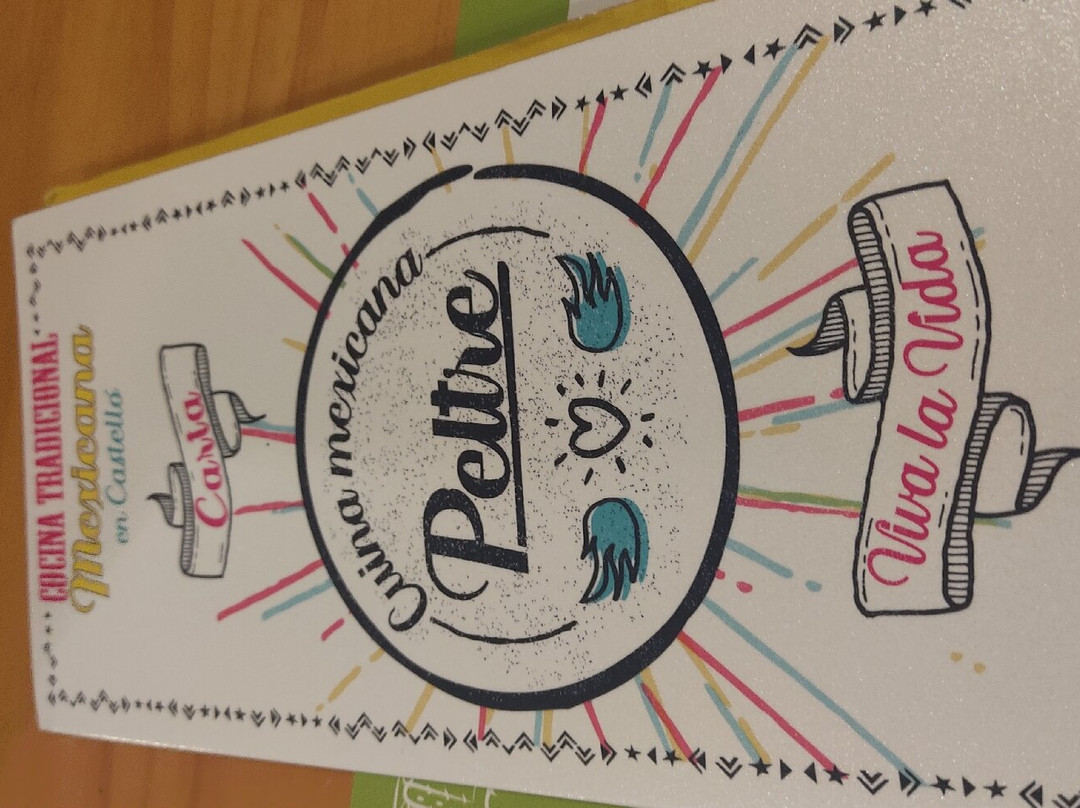 COCINA TRADICIONAL
Mexicana
en Castelló
Carta
Cuina mexicana
Peltre
Viva la Vida